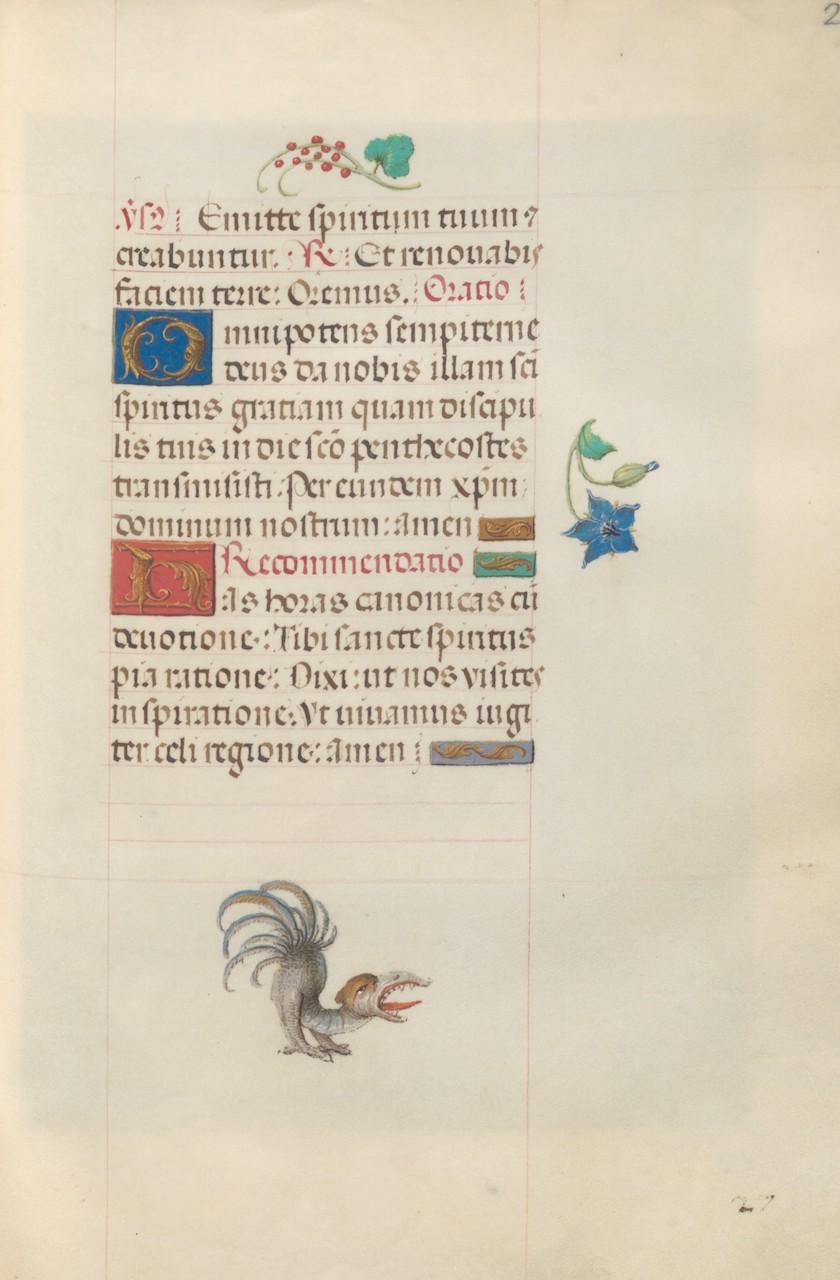 2
.v̄sꝛ: Emitte spiritum tuum ⁊
creabuntur. R: Et renouabis
faciem terre: Oremus. Oratio:
Omnipotens sempiterne
deus da nobis illam sc̄i
spiritus gratiam quam discipu
lis tuis in die sc̄o penthecostes
transmisisti. Per eundem xp̄m
dominum nostrum: amen
Recommendatio
Has horas canonicas cū
deuotione: Tibi sancte spiritus
pia ratione: Dixi: ut nos visites
inspiratione. Vt uiuamus iugi
ter celi regione: amen:
27